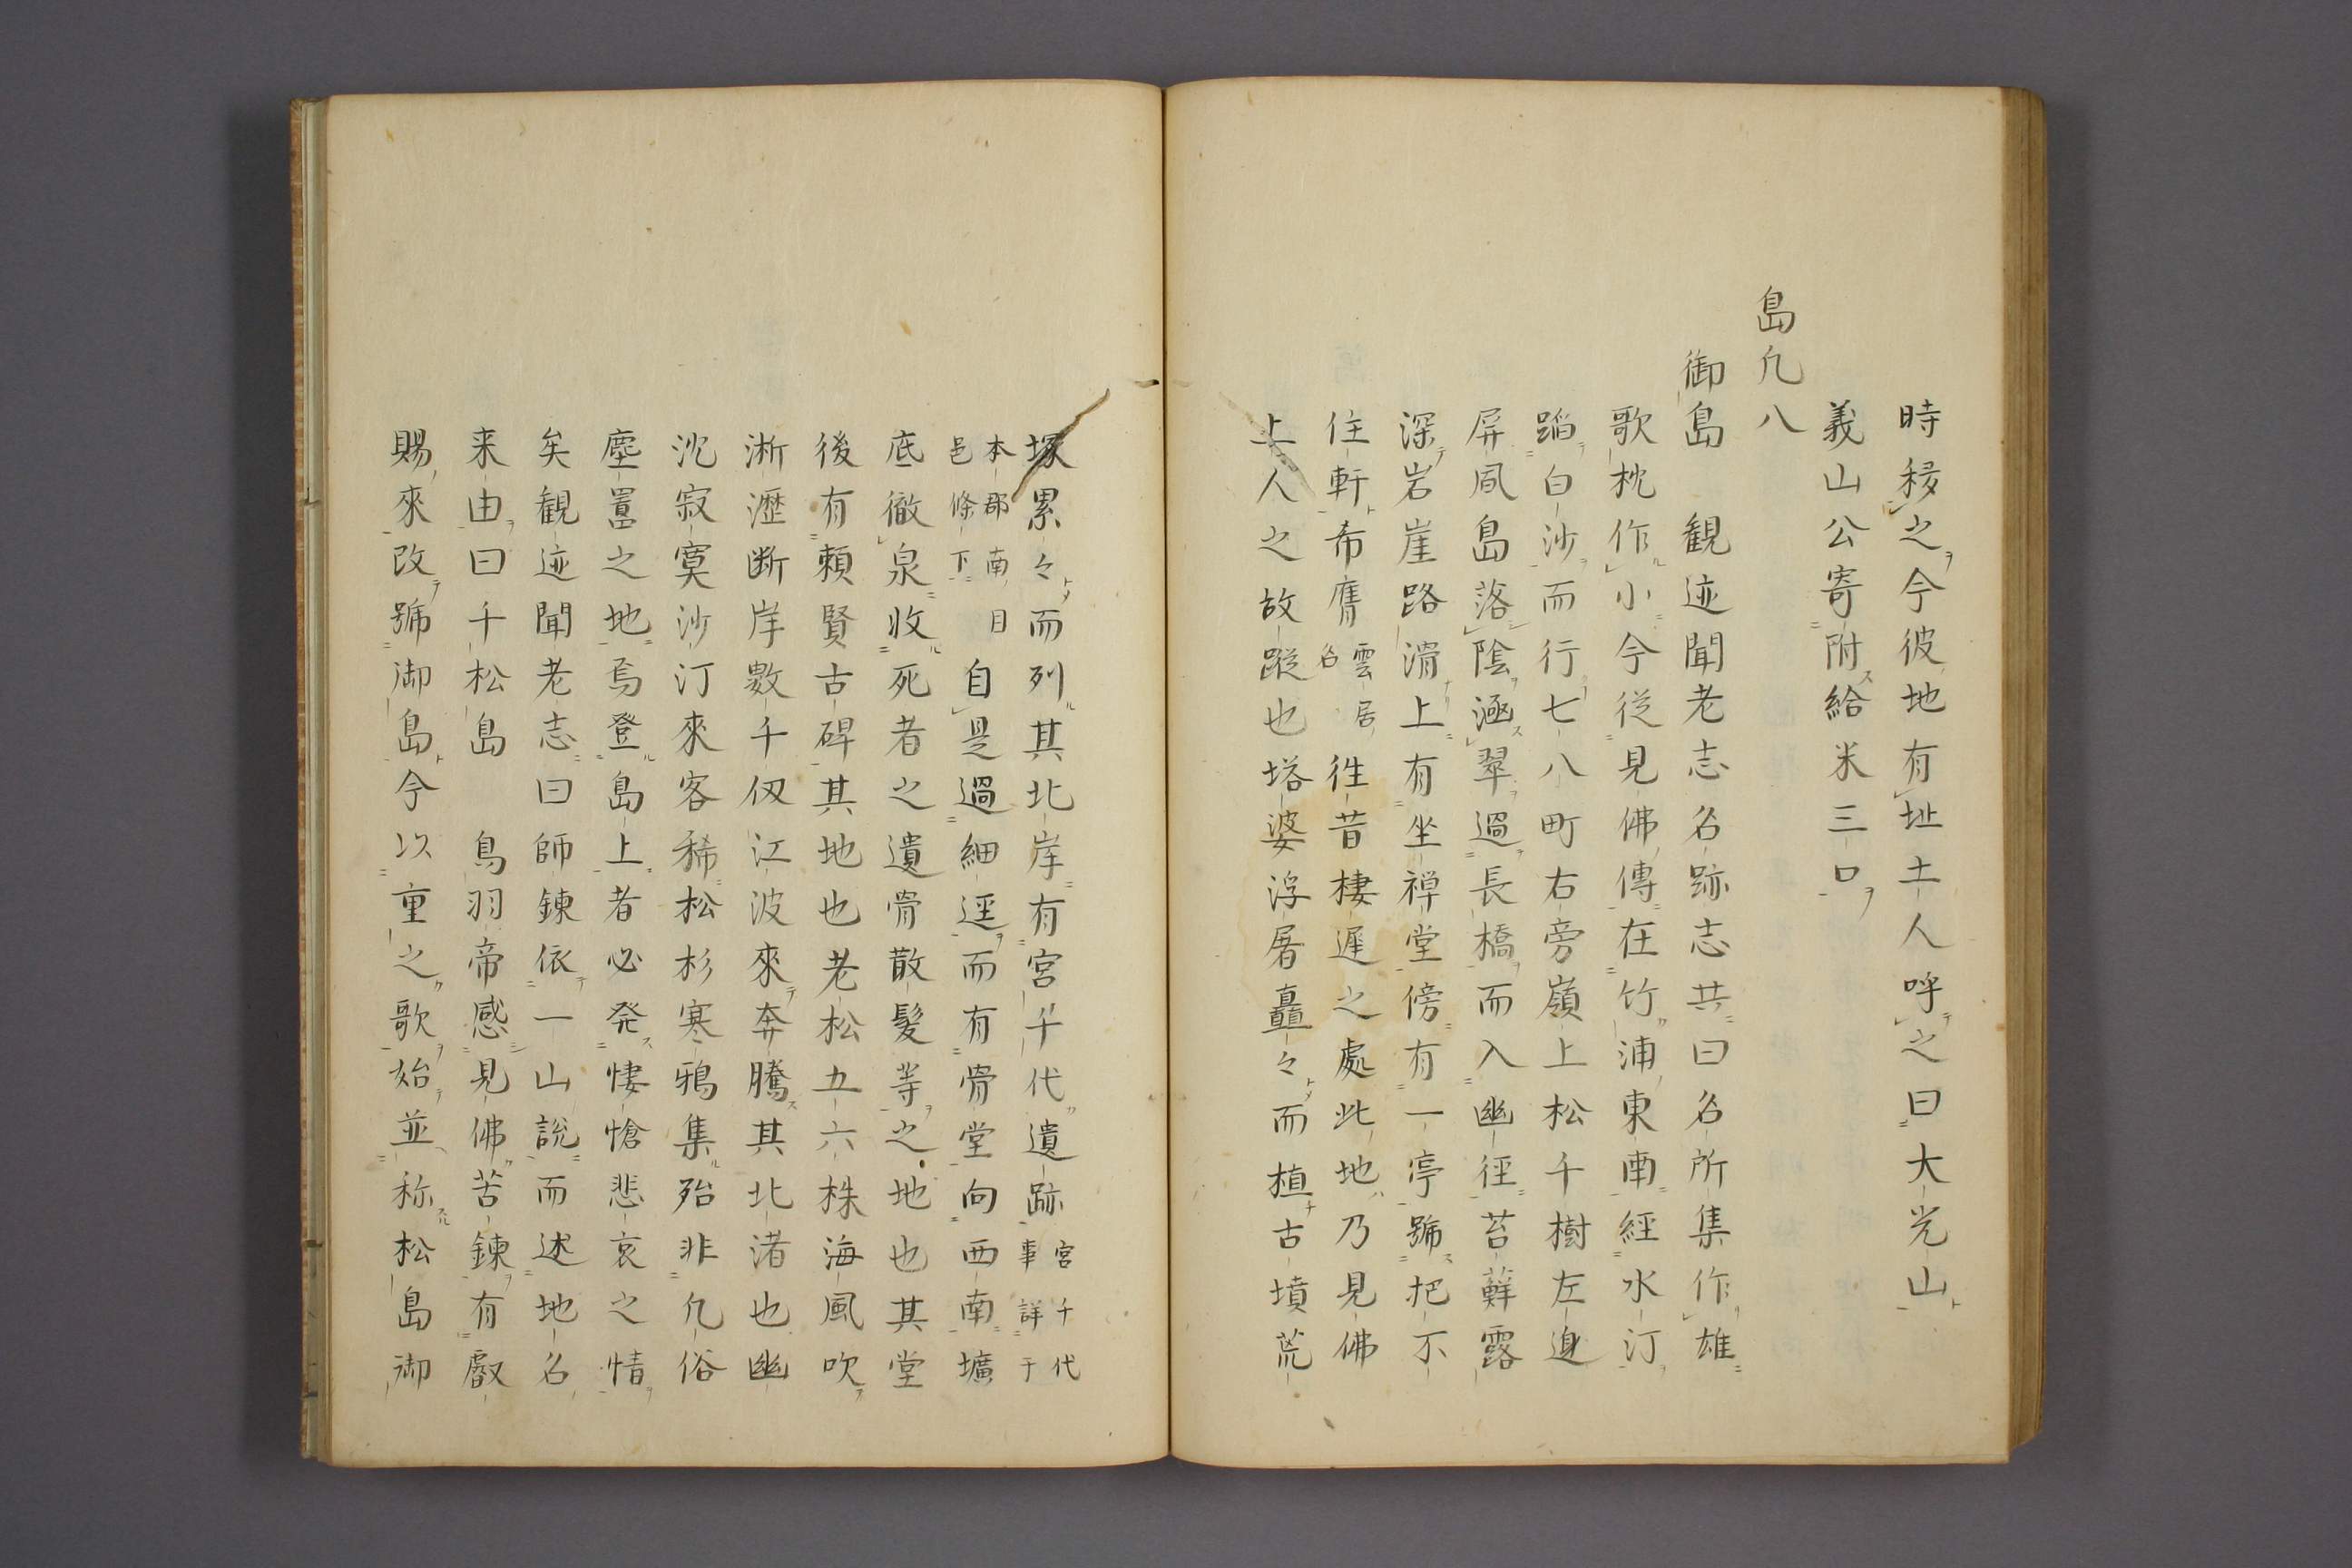 時移之今彼地有址土人呼之曰大光山
義山公寄附給米三口
島凢八
御島　観迹聞老志名跡志共曰名所集作雄
歌枕作小今従見佛傳在竹浦東南経水汀
蹈白沙而行七八町右旁嶺上松千樹左邊
屏風島落陰涵翠過長橋而入幽径苔蘚露
深岩崖路滑上有坐禅堂傍有一亭號把不
住軒希膺雲居名往昔棲遲之處此地乃見佛
上人之故蹤也塔婆浮屠矗々而植古墳荒
塚累々而列其北岸有宮千代遺跡宮千代事詳于
本郡南目邑條下自是過細逕而有骨堂向西南壙
底徹泉收死者之遺骨散髮等之地也其堂
後有頼賢古碑其地也老松五六株海風吹
淅瀝断岸數千仭江波來奔騰其北渚也幽
沈寂寞沙汀來客稀松杉寒鴉集殆非凢俗
塵囂之地焉登島上者必発悽愴悲哀之情
矣観迹聞老志曰師錬依一山説而述地名
来由曰千松島　鳥羽帝感見佛苦錬有叡
賜來改號御島今以重之歌始並称松島御